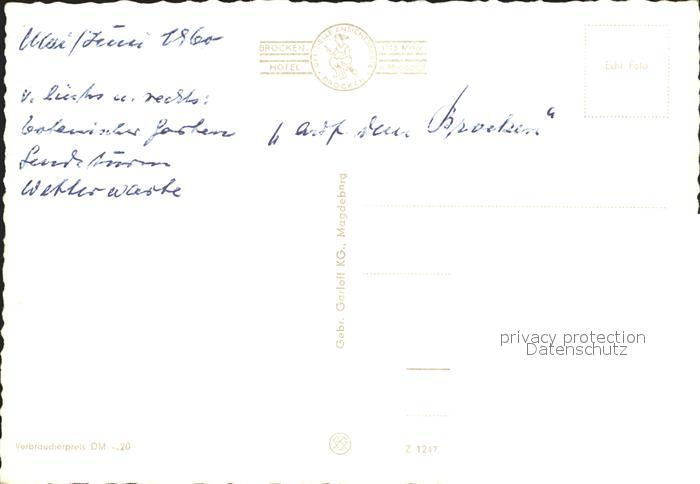 Mai/Juni 1960
v. links n. rechts:
botanischer Garten
Sendeturm
Wetterwarte
"auf dem Brocken"
BROCKEN-
HOTEL
BROCKEN
Echt Foto
Gebr. Garloff KG., Magdeburg
privacy protection
Datenschutz
Verbraucherpreis DM -.20
Z 1247